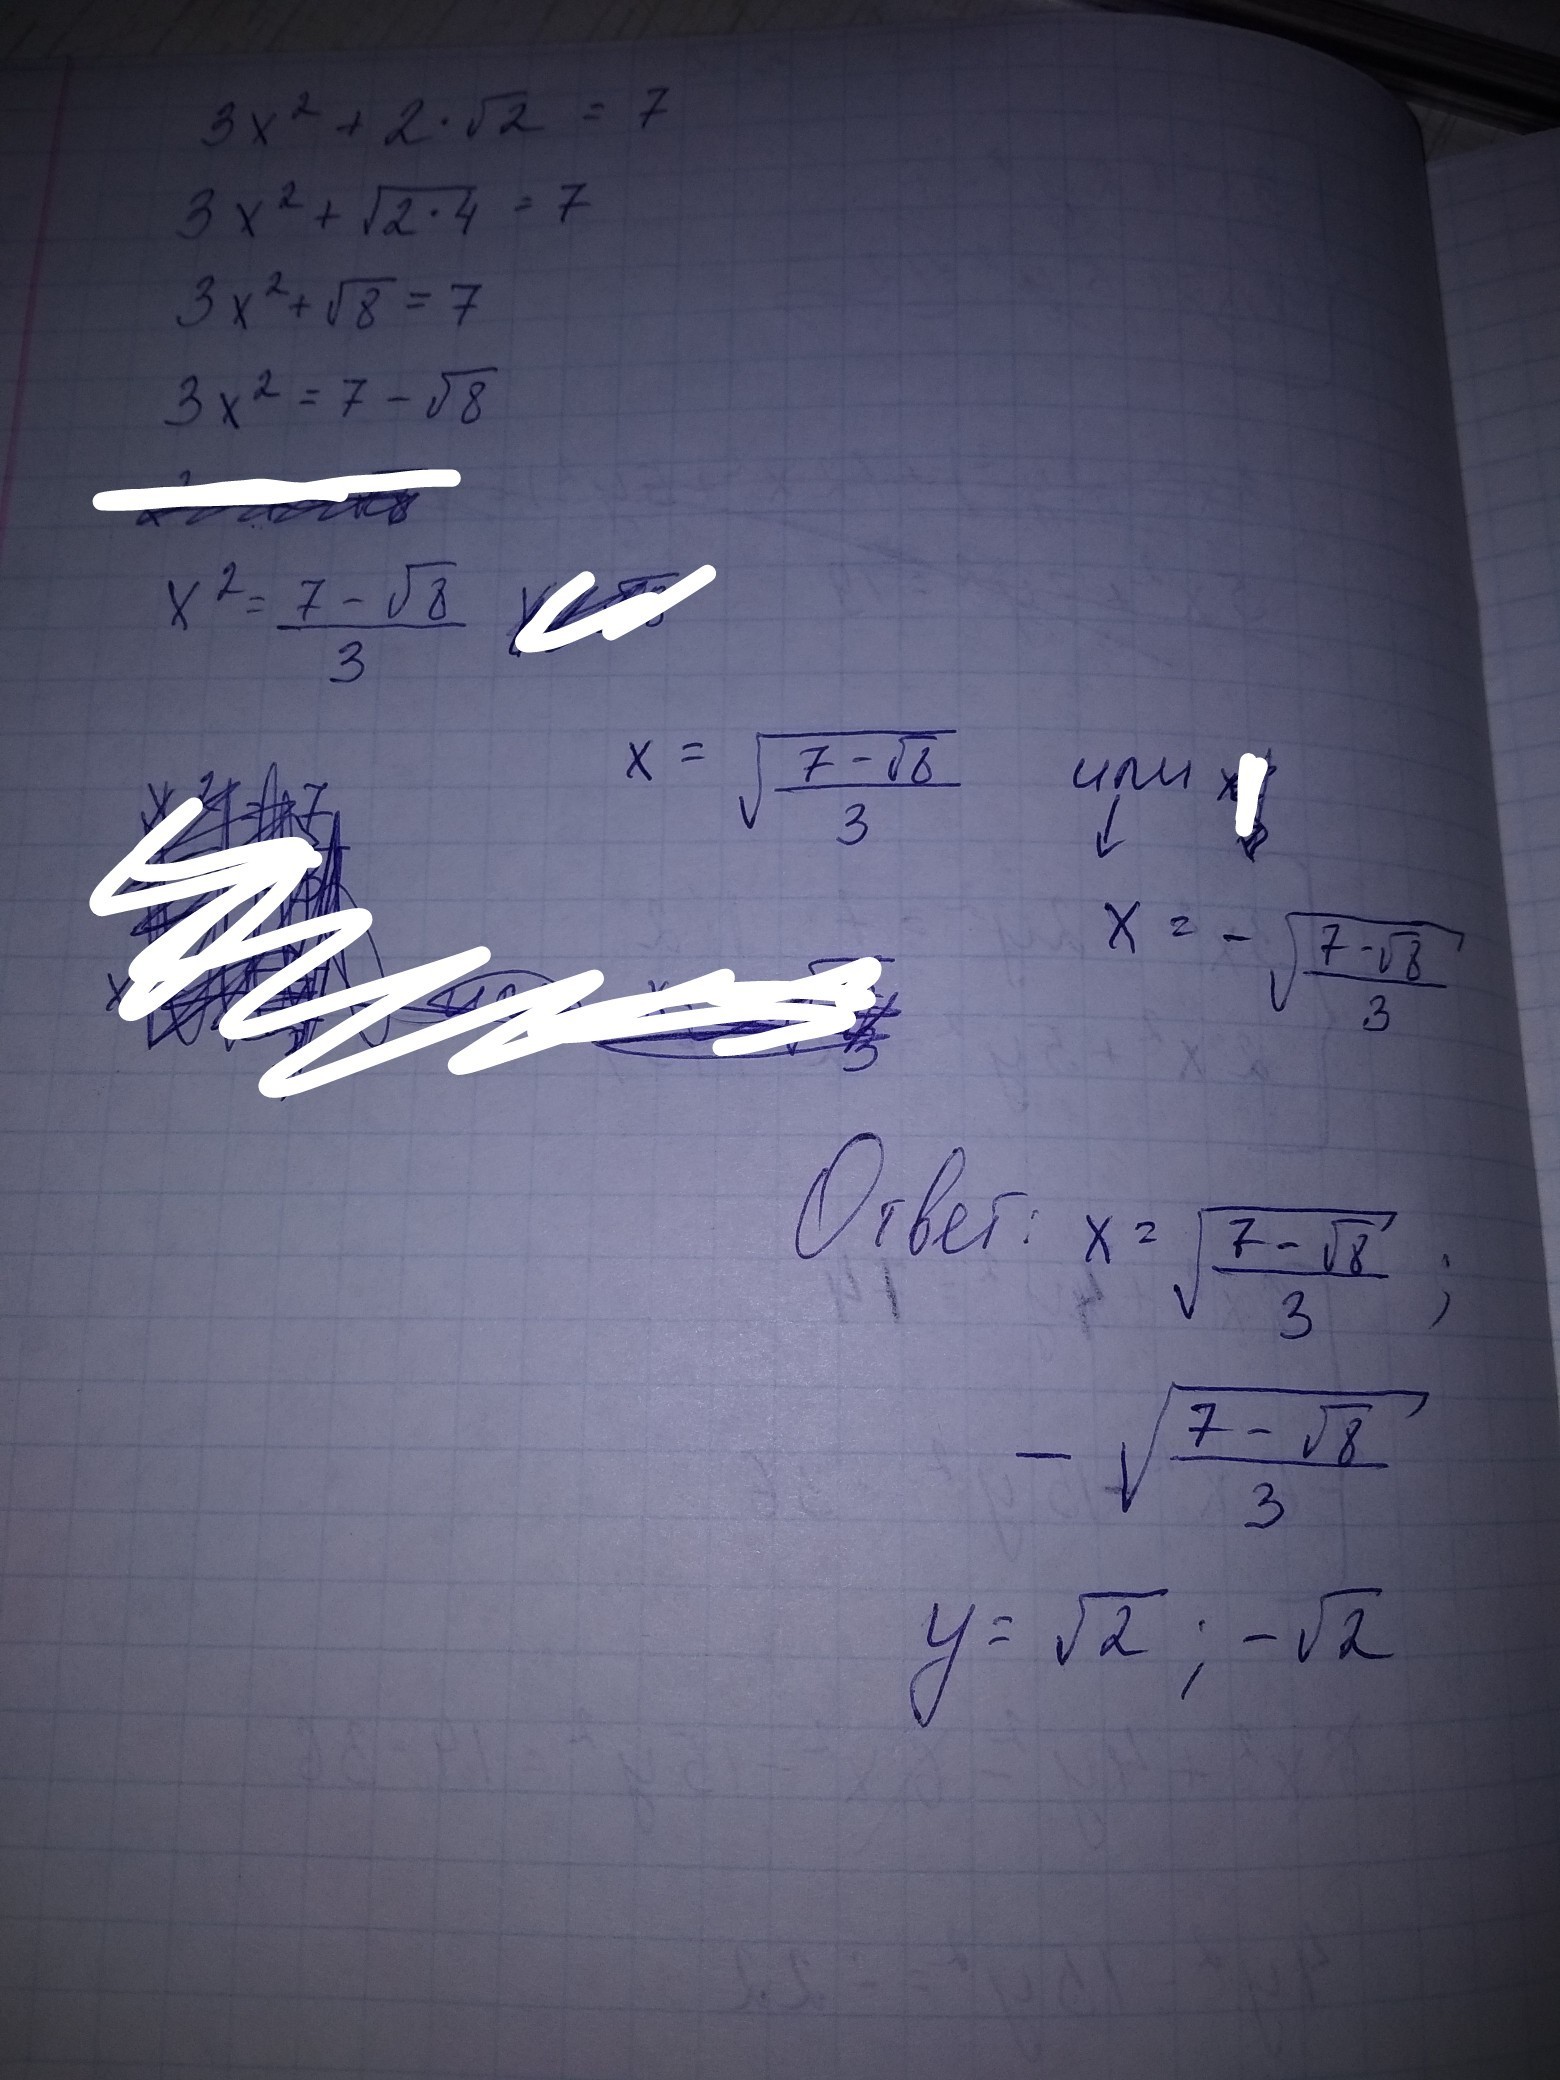 3x² + 2·√2 = 7
3x² + √2·4 = 7
3x² + √8 = 7
3x² = 7 - √8
x² = (7 - √8)/3
x = √((7 - √8)/3) или
x = -√((7 - √8)/3)
Ответ: x = √((7 - √8)/3) ;
- √((7 - √8)/3)
y = √2 ; -√2